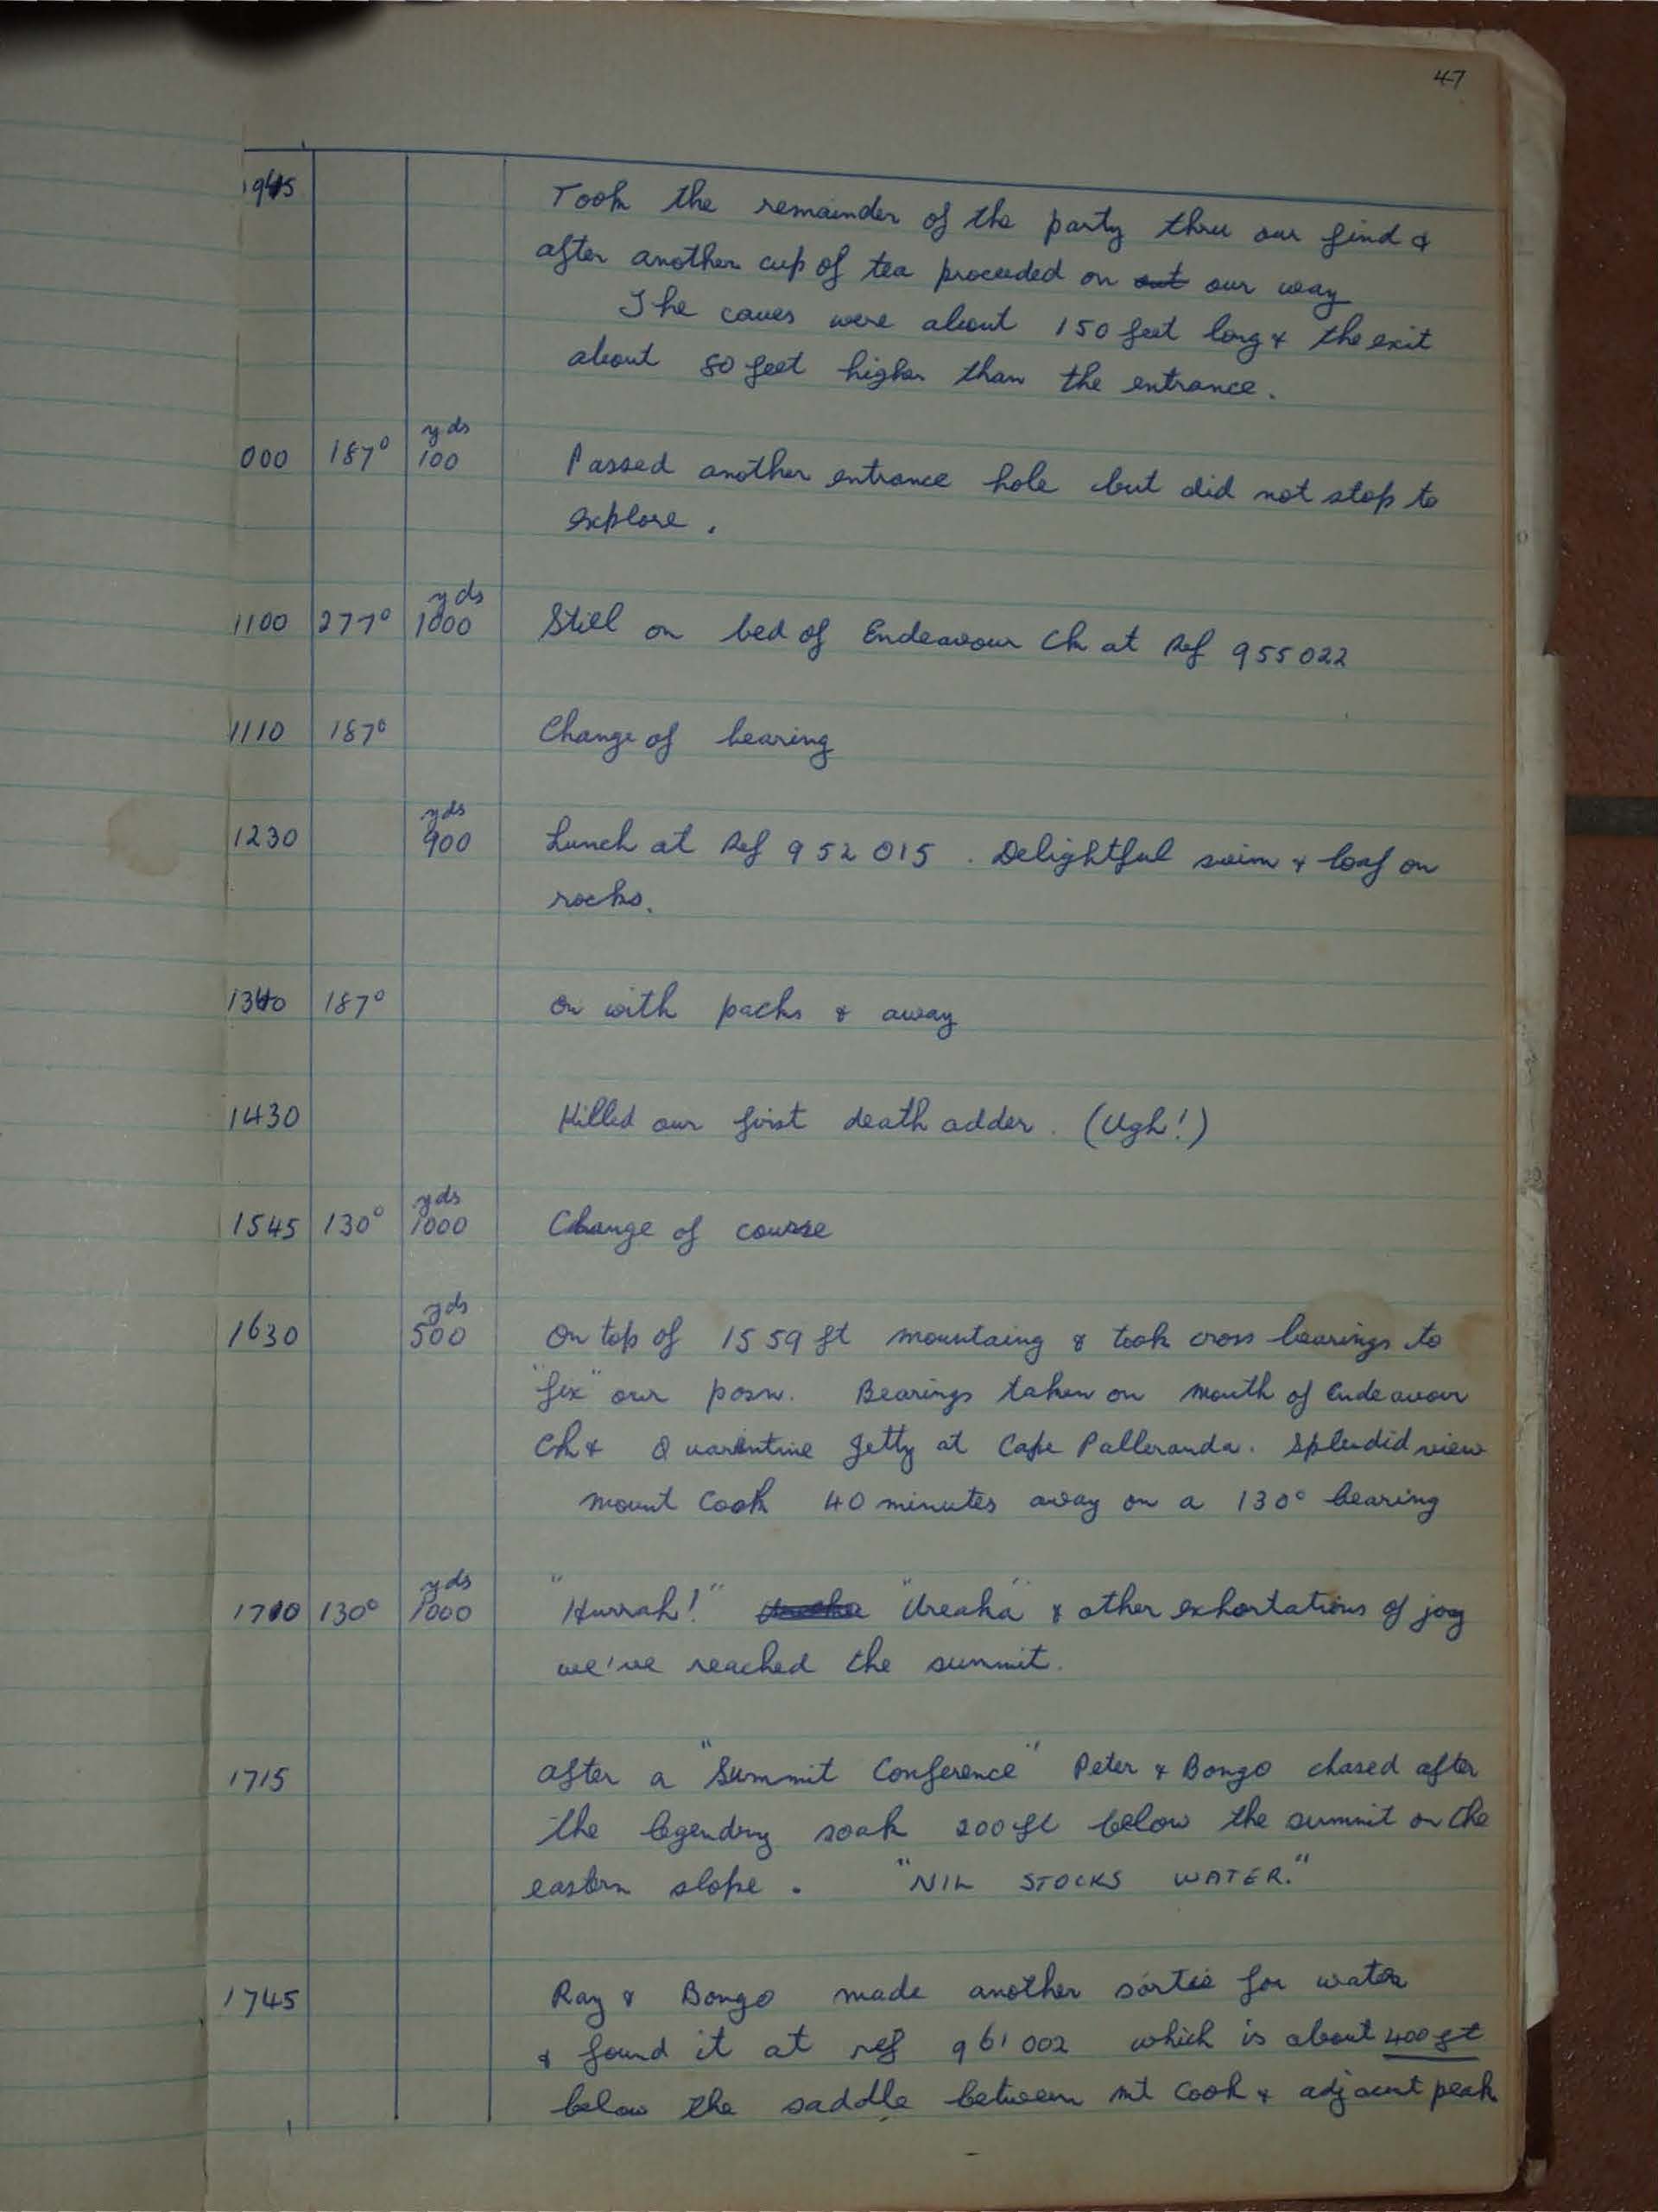 47
1945 Took the remainder of the party thru our find &
after another cup of tea proceeded on out our way
The caves were about 150 feet long & the exit
about 80 feet higher than the entrance.
yds
000 187° 100 Passed another entrance hole but did not stop to
explore.
yds
1100 277° 1000 Still on bed of Endeavour Ck at Ref 955022
1110 187° Change of bearing
yds
1230 900 Lunch at Ref 952015. Delightful swim & loaf on
rocks.
1340 187° on with packs & away
1430 Killed our first death adder. (Ugh!)
yds
1545 130° 1000 Change of course
yds
1630 500 On top of 1559 ft mountaing & took cross bearings to
"fix" our posn. Bearings taken on mouth of Endeavour
Ck & Quarentine Jetty at Cape Palleranda. Splendid view
Mount Cook 40 minutes away on a 130° bearing
yds
1710 130° 1000 "Hurrah!" "Ureaka" & other exhortations of joy
we've reached the summit.
1715 after a "Summit Conference" Peter & Bongo chased after
the legendry soak 200 ft below the summit on the
eastern slope. "NIL STOCKS WATER."
1745 Ray & Bongo made another sortie for water
& found it at ref 961002 which is about 400 ft
below the saddle between mt Cook & adjacent peak